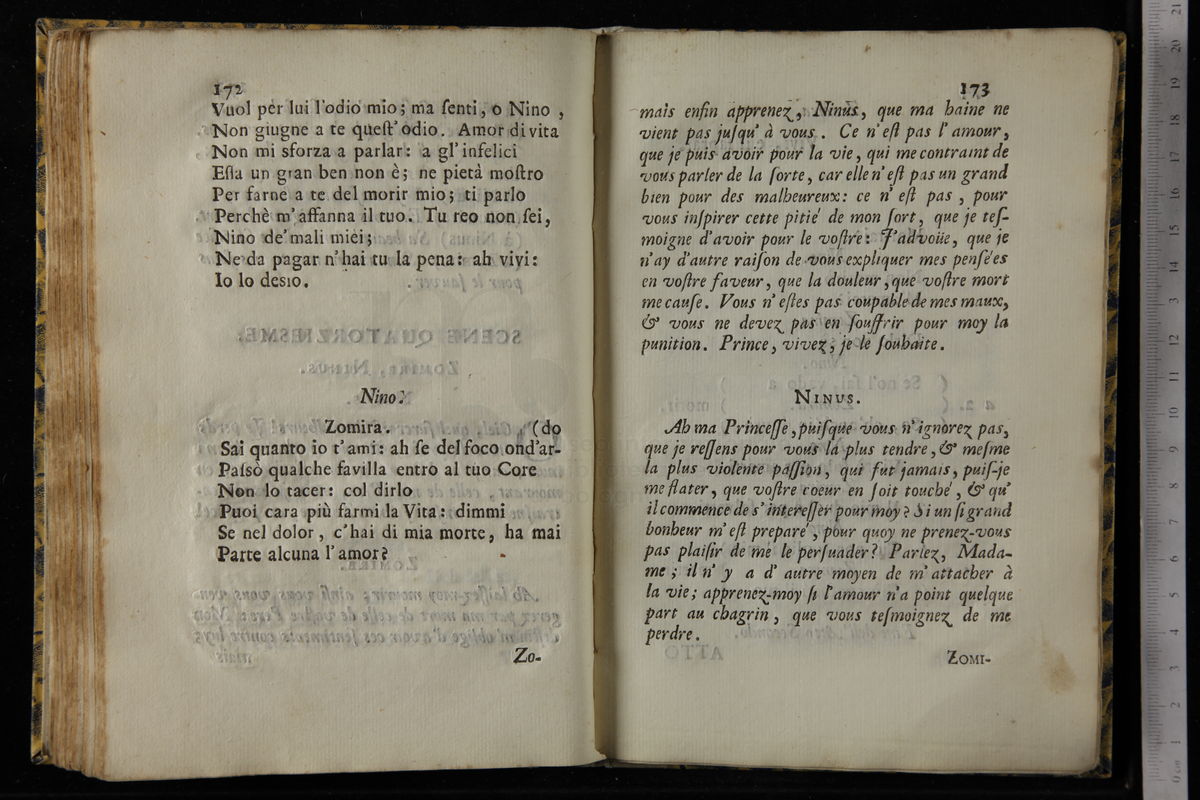 172
Vuol per lui l'odio mio; ma ſenti, o Nino,
Non giugne a te queſt' odio. Amor di vita
Non mi sforza a parlar: a gl' infelici
Eſſa un gran ben non è; ne pietà moſtro
Per farne a te del morir mio; ti parlo
Perchè m' affanna il tuo. Tu reo non ſei,
Nino de' mali miei;
Ne da pagar n' hai tu la pena: ah vivi:
Io lo desio.
Nino.
Zomira. (do
Sai quanto io t' ami: ah ſe del foco ond' ar-
Paſsò qualche favilla entro al tuo Core
Non lo tacer: col dirlo
Puoi cara più farmi la Vita: dimmi
Se nel dolor, c' hai di mia morte, ha mai
Parte alcuna l' amor?
Zo-
173
mais enfin apprenez, Ninus, que ma haine ne
vient pas juſqu' à vous. Ce n' eſt pas l' amour,
que je puis avoir pour la vie, qui me contraint de
vous parler de la ſorte, car elle n' eſt pas un grand
bien pour des malheureux: ce n' eſt pas, pour
vous inſpirer cette pitié de mon ſort, que je teſ-
moigne d'avoir pour le voſtre: J'advoüe, que je
n'ay d'autre raiſon de vous expliquer mes penſées
en voſtre faveur, que la douleur, que voſtre mort
me cauſe. Vous n' eſtes pas coupable de mes maux,
& vous ne devez pas en ſouffrir pour moy la
punition. Prince, vivez, je le ſouhaite.
NINUS.
Ah ma Princeſſe, puiſque vous n' ignorez pas,
que je reſſens pour vous la plus tendre, & meſme
la plus violente paſſion, qui fut jamais, puiſ-je
me flater, que voſtre coeur en ſoit touché, & qu'
il commence de s' intereſſer pour moy? Si un ſi grand
bonheur m' eſt preparé, pour quoy ne prenez-vous
pas plaiſir de me le perſuader? Parlez, Mada-
me; il n' y a d' autre moyen de m' attacher à
la vie; apprenez-moy ſi l'amour n'a point quelque
part au chagrin, que vous teſmoignez de me
perdre.
ZOMI-